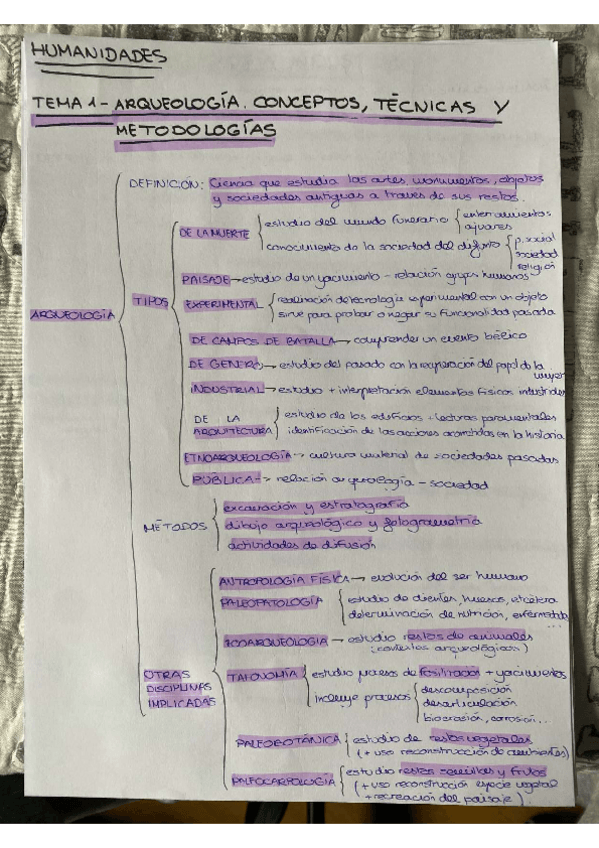 HUMANIDADES
TEMA 1 - ARQUEOLOGÍA. CONCEPTOS, TÉCNICAS Y
METODOLOGÍAS
ARQUEOLOGÍA
DEFINICIÓN: Ciencia que estudia las artes, monumentos, objetos
y sociedades antiguas a través de sus restos.
TIPOS
DE LA MUERTE
estudio del mundo funerario
enterramientos
ajuares
conocimiento de la sociedad del difunto
p. social
sociedad
religión
PAISAJE → estudio de un yacimiento - relación grupos humanos
EXPERIMENTAL
realización de tecnología experimental con un objeto
sirve para probar o negar su funcionalidad pasada
DE CAMPOS DE BATALLA → comprender un evento bélico
DE GÉNERO → estudio del pasado con la recuperación del papel de la
mujer
INDUSTRIAL → estudio + interpretación elementos físicos industriales
DE LA
ARQUITECTURA
estudio de los edificios + lecturas paramentales
identificación de las acciones acometidas en la historia
ETNOARQUEOLOGÍA → cultura material de sociedades pasadas
PÚBLICA → relación arqueología - sociedad
MÉTODOS
excavación y estratigrafía
dibujo arqueológico y fotogrametría
actividades de difusión
OTRAS
DISCIPLINAS
IMPLICADAS
ANTROPOLOGÍA FÍSICA → evolución del ser humano
PALEOPATOLOGÍA
estudio de dientes, huesos, etcétera
determinación de nutrición,
ZOOARQUEOLOGÍA → estudio restos de animales
(contextos arqueológicos)
TAFONOMÍA
estudio proceso de fosilización + yacimientos
incluye procesos
descomposición
desarticulación
bioerosión, corrosión...
PALEOBOTÁNICA
estudio de restos vegetales
(+ uso reconstrucción de ambientes)
PALEOCARPOLOGÍA
estudio restos semillas y frutos
(+ uso reconstrucción especie vegetal
+ recreación del paisaje).